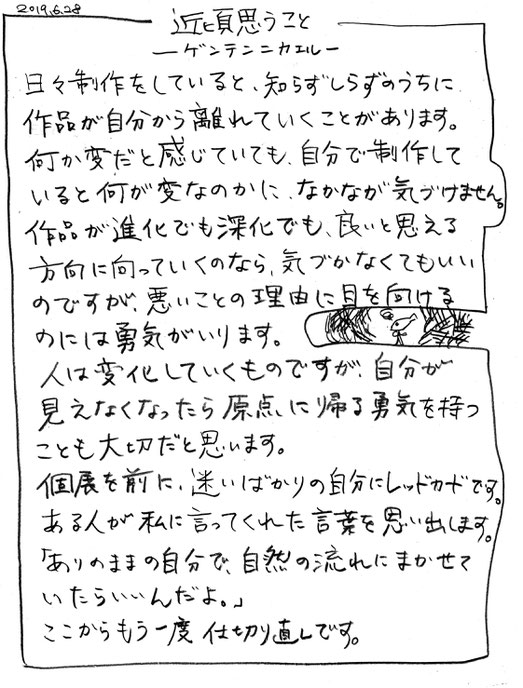 2019.6.28
近頃思うこと
ーゲンテンニカエルー
日々制作をしていると、知らずしらずのうちに
作品が自分から離れていくことがあります。
何か変だと感じていても、自分で制作して
いると何が変なのかに、なかなが気づけません。
作品が進化でも深化でも、良いと思える
方向に向っていくのなら、気づかなくてもいい
のですが、悪いことの理由に目を向ける
のには勇気がいります。
人は変化していくものですが、自分が
見えなくなったら原点に帰る勇気を持つ
ことも大切だと思います。
個展を前に、迷いばかりの自分にレッドカードです。
ある人が私に言ってくれた言葉を思い出します。
「ありのままの自分で、自然の流れにまかせて
いたらいいんだよ。」
ここからもう一度仕切り直しです。